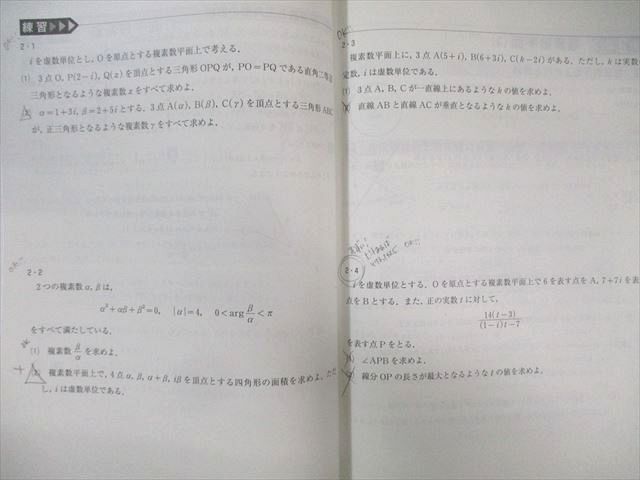 練習
OK!!
2・1
iを虚数単位とし，Oを原点とする複素数平面上で考える．
(1) 3点O，P(2−i)，Q(z)を頂点とする三角形OPQが，PO=PQである直角二等辺
三角形となるような複素数zをすべて求めよ．
(2) α=1+3i，β=2+5iとする．3点A(α)，B(β)，C(γ)を頂点とする三角形ABC
が，正三角形となるような複素数γをすべて求めよ．
OK!!
2・2
2つの複素数α，βは，
α²+αβ+β²=0， |α|=4， 0<arg β/α<π
をすべて満たしている．
(1) 複素数 β/α を求めよ．
(2) 複素数平面上で，4点α，β，α+β，iβを頂点とする四角形の面積を求めよ．ただ
し，iは虚数単位である．
OK!!
2・3
複素数平面上に，3点A(5+i)，B(6+3i)，C(k−2i)がある．ただし，kは実数の
定数，iは虚数単位である．
(1) 3点A，B，Cが一直線上にあるようなkの値を求めよ．
直線ABと直線ACが垂直となるようなkの値を求めよ．
OK!!
2・4
iを虚数単位とする．Oを原点とする複素数平面上で6を表す点をA，7+7iを表す
点をBとする．また，正の実数tに対して，
14(t−3)/(1−i)t−7
を表す点Pをとる．
∠APBを求めよ．
線分OPの長さが最大となるようなtの値を求めよ．